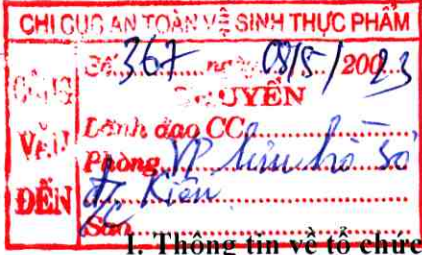 CHI CỤC AN TOÀN VỆ SINH THỰC PHẨM
CÔNG VĂN ĐẾN
Số 367 ngày 08/5/2023
CHUYỂN
Lãnh đạo CC
Phòng VP lưu hồ sơ
Đ/c Kiên
Sao
I. Thông tin về tổ chức